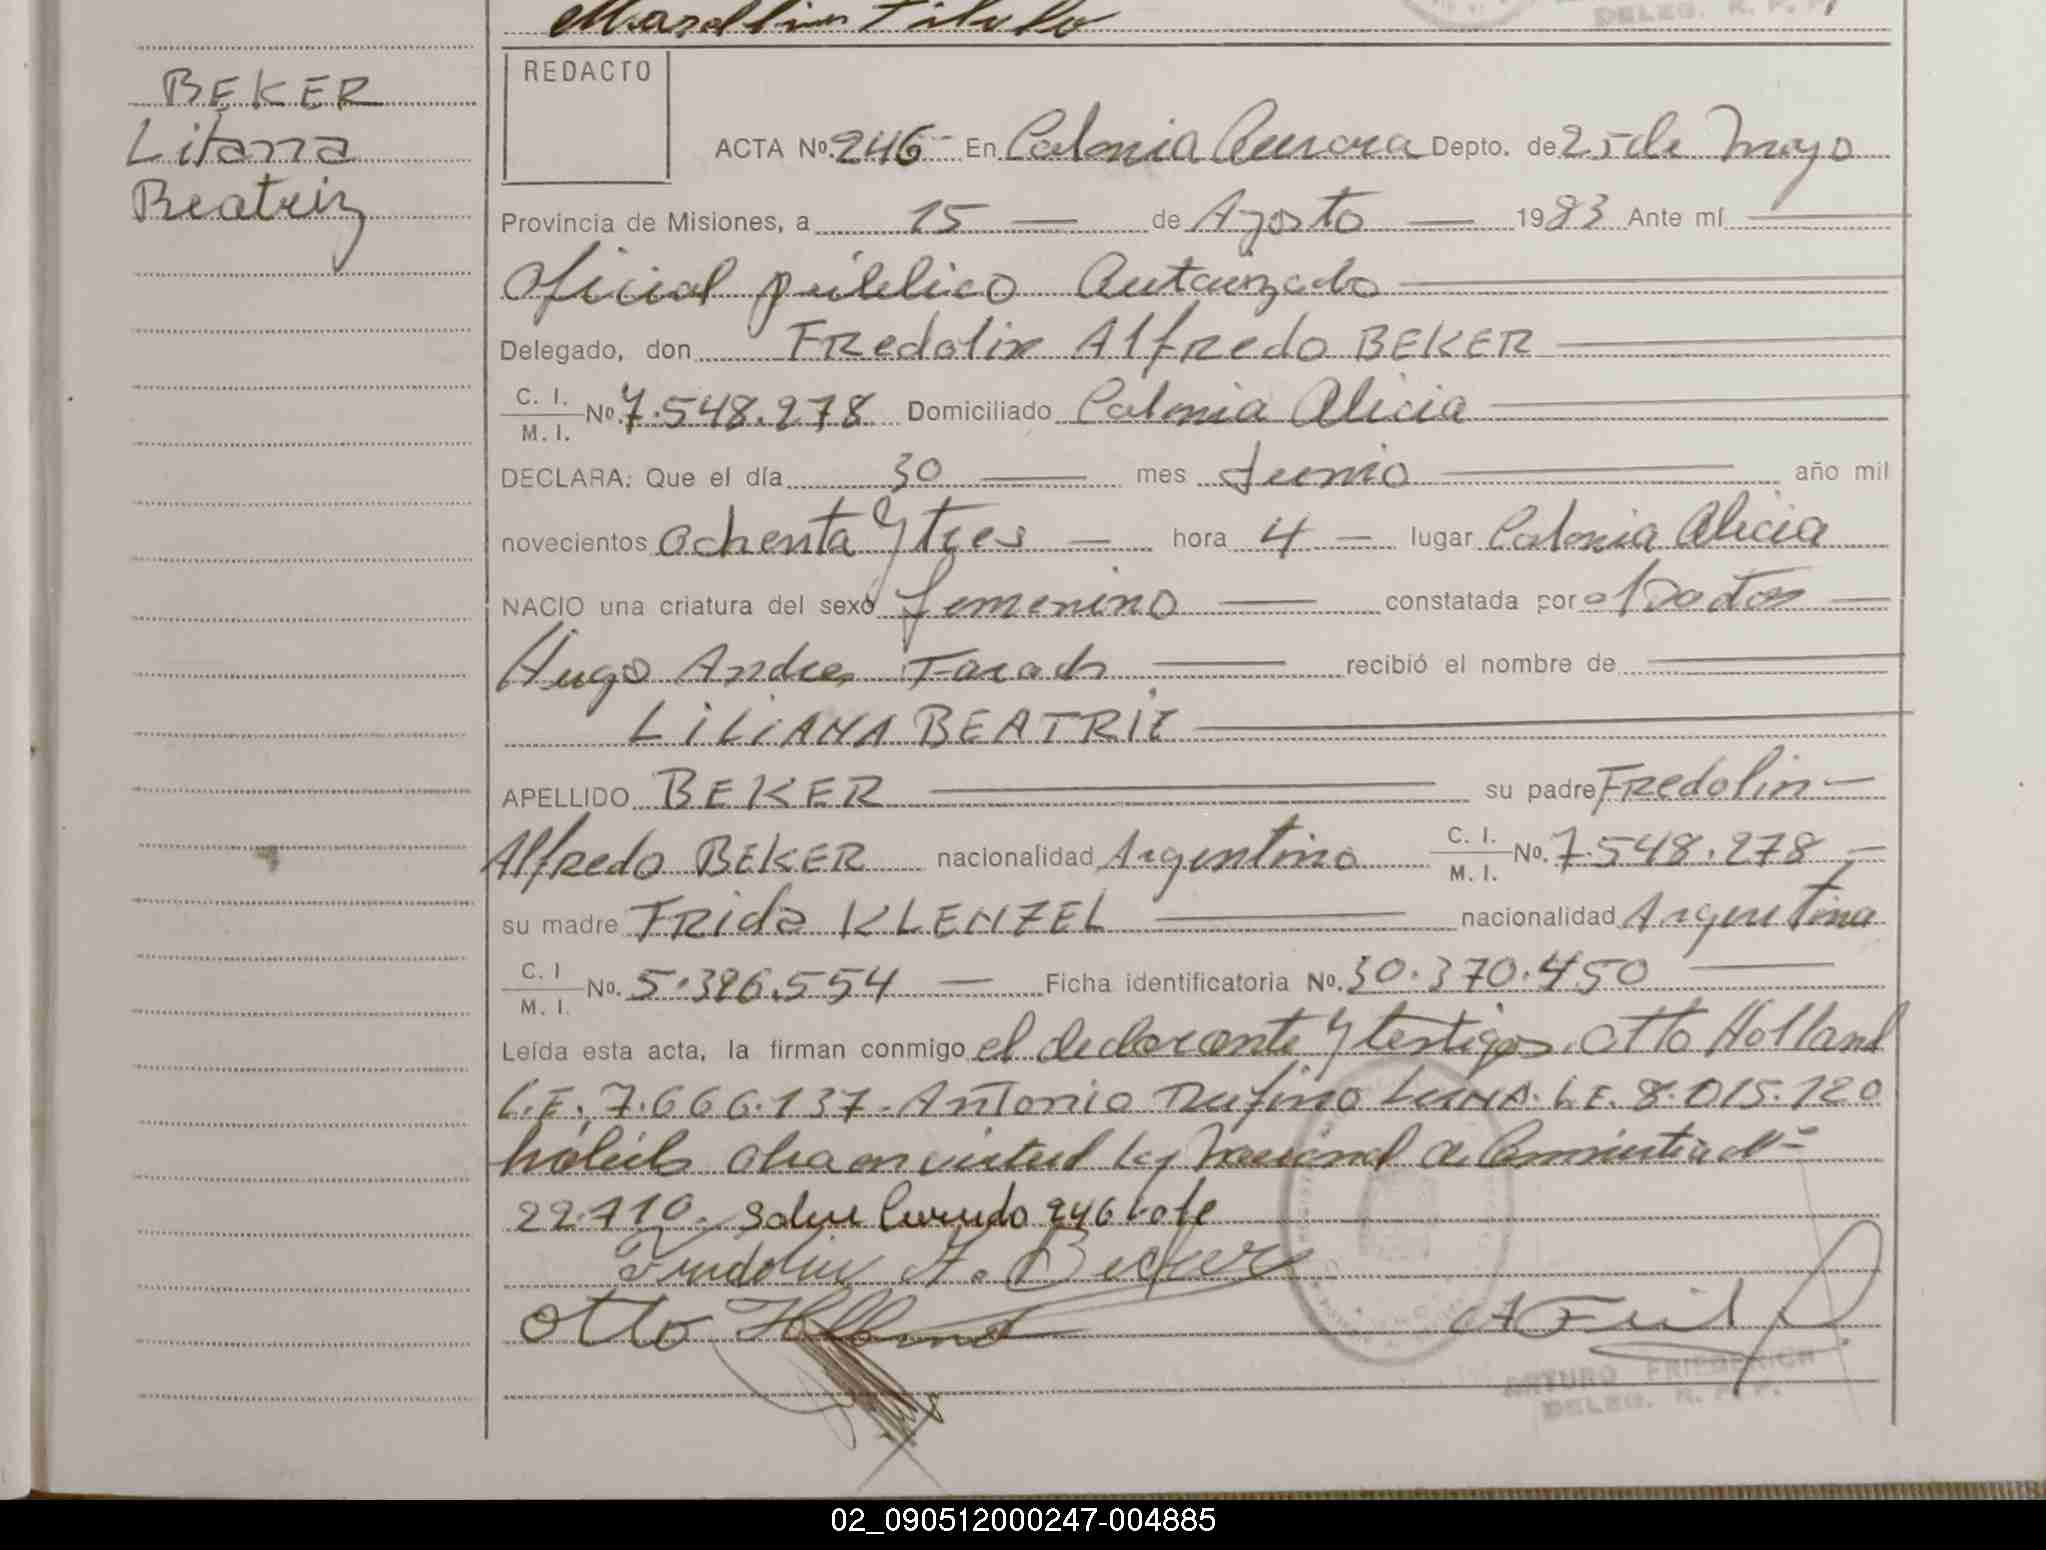 DELEG. R. P. P.
BEKER
Liliana
Beatriz
REDACTO
ACTA Nº. 246 En Colonia Aurora Depto. de 25 de Mayo
Provincia de Misiones, a 15 — de Agosto — 1983 Ante mí
Oficial público Autorizado
Delegado, don Fredolin Alfredo BEKER
C. I. / M. I. Nº. 7.548.278 Domiciliado Colonia Alicia
DECLARA: Que el día 30 — mes Junio — año mil
novecientos ochenta y tres — hora 4 — lugar Colonia Alicia
NACIO una criatura del sexo femenino — constatada por el Doctor —
Hugo Andres Farach — recibió el nombre de
LILIANA BEATRIZ
APELLIDO BEKER — su padre Fredolin —
Alfredo BEKER nacionalidad Argentino C. I. / M. I. Nº. 7.548.278 —
su madre Frida KLENZEL — nacionalidad Argentina
C. I / M. I. Nº. 5.396.554 — Ficha identificatoria Nº. 30.370.450 —
Leída esta acta, la firman conmigo el declarante y testigos. Otto Holland
L.E. 7.666.137. Antonio Rufino LUNA. L.E. 8.015.120
hábiles en virtud ley Nacional de Amnistia Nº
22.710. Sobre 246 vale
Fredolin A. Becker
Otto Holland
ARTURO FRIEDERICH
DELEG. R. P. P.
02_090512000247-004885